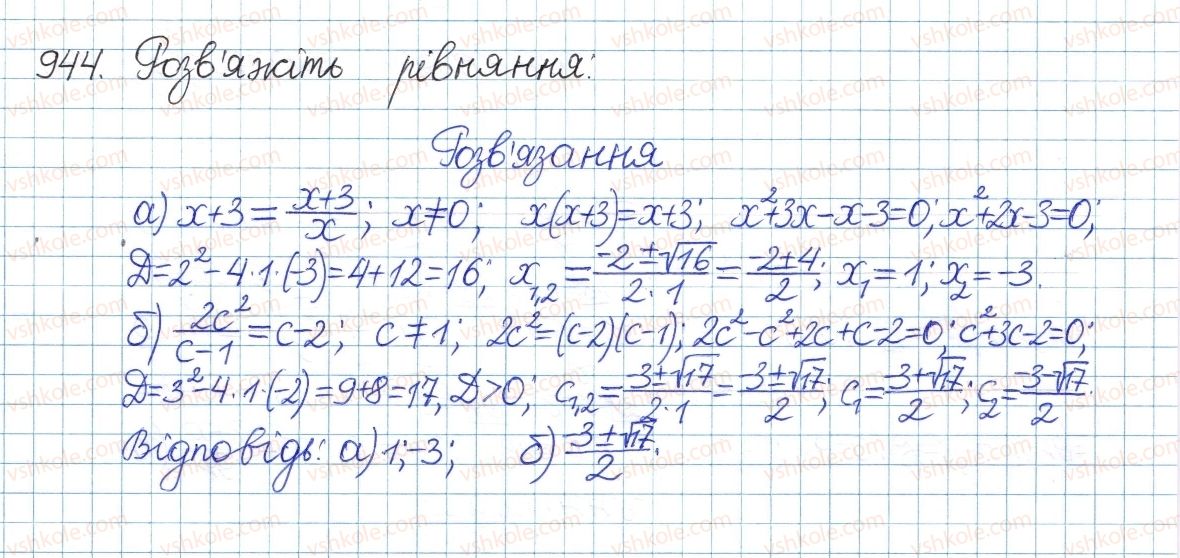 944. Розв'яжіть рівняння:
Розв'язання
а) x+3 = \frac{x+3}{x}; x≠0; x(x+3)=x+3; x²+3x-x-3=0; x²+2x-3=0;
Д=2²-4·1·(-3)=4+12=16; x₁,₂ = \frac{-2±√16}{2·1} = \frac{-2±4}{2}; x₁=1; x₂=-3.
б) \frac{2c²}{c-1} = c-2; c≠1; 2c²=(c-2)(c-1); 2c²-c²+2c+c-2=0; c²+3c-2=0;
Д=3²-4·1·(-2)=9+8=17, Д>0; c₁,₂ = \frac{-3±√17}{2·1} = \frac{-3±√17}{2}; c₁ = \frac{-3+√17}{2}; c₂ = \frac{-3-√17}{2}.
Відповідь: а) 1; -3; б) \frac{-3±√17}{2}.